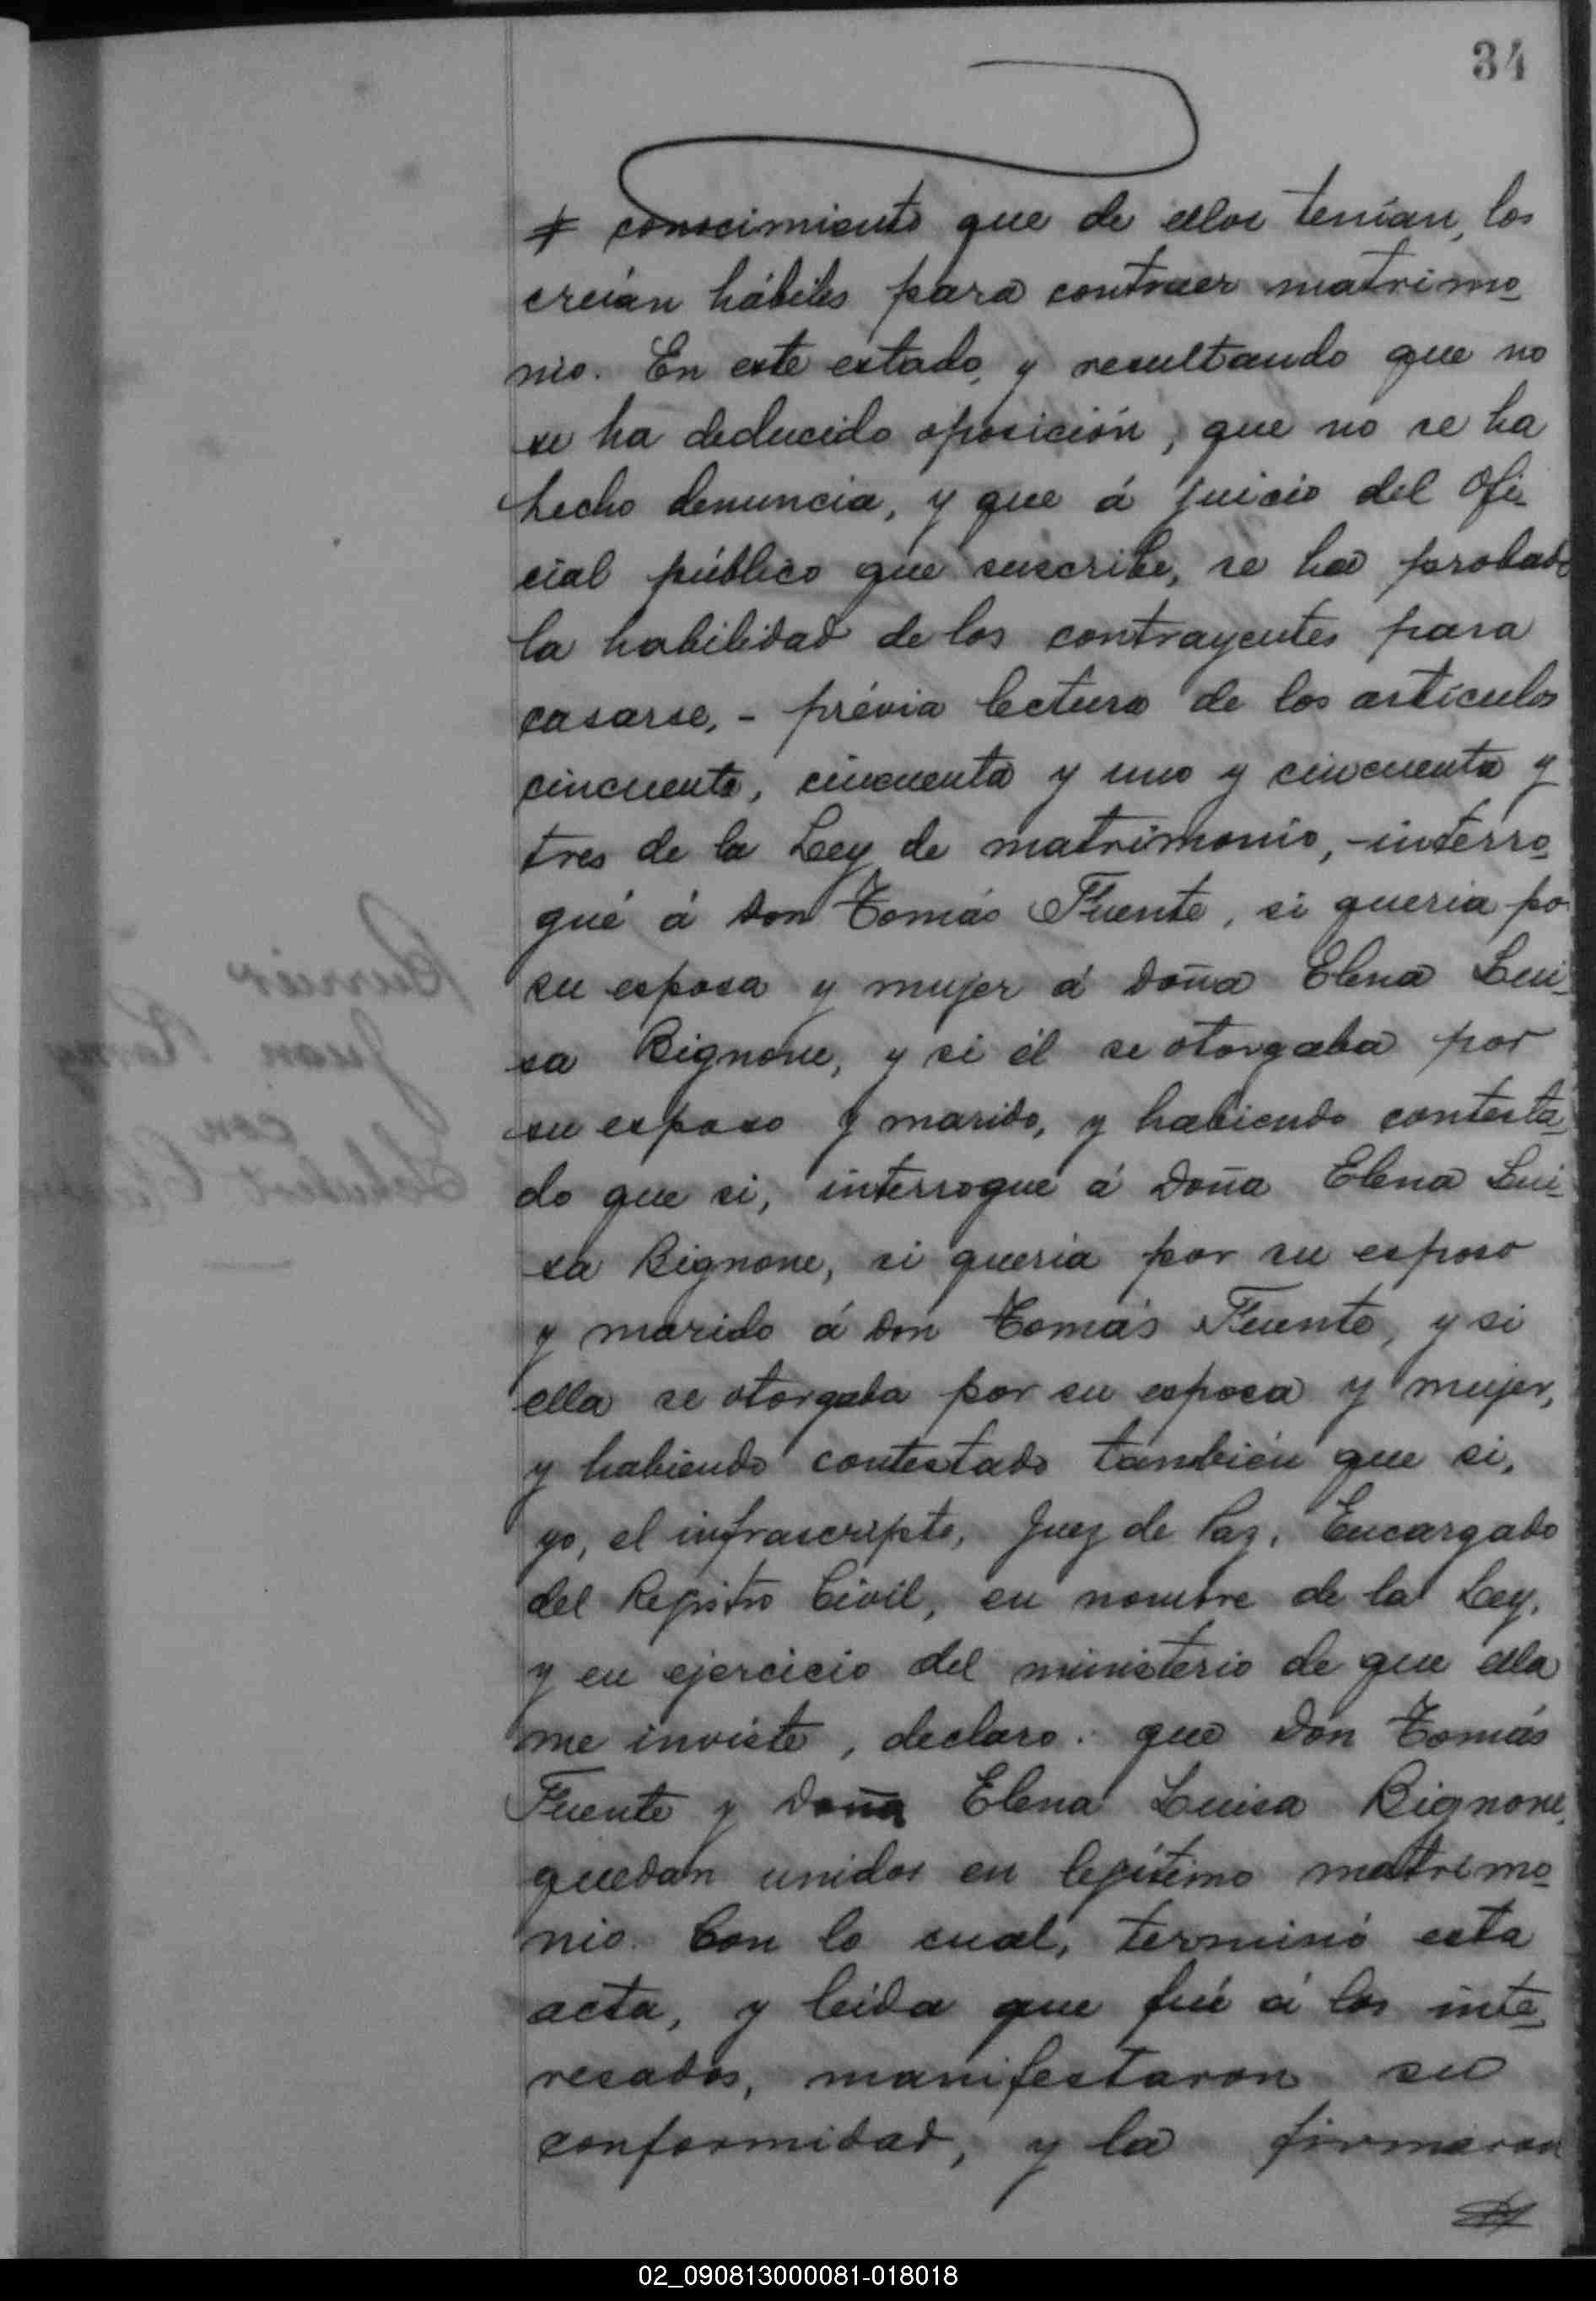 34
# conocimiento que de ellos tenían, los
creían hábiles para contraer matrimo-
nio. En este estado, y resultando que no
se ha deducido oposición, que no se ha
hecho denuncia, y que á juicio del Ofi-
cial público que suscribe, se ha probado
la habilidad de los contrayentes para
casarse, - prévia lectura de los artículos
cincuenta, cincuenta y uno y cincuenta y
tres de la Ley de matrimonio, - interro-
gué á Don Tomás Fuente, si queria po
su esposa y mujer á Doña Elena Lui-
sa Bignone, y si él se otorgaba por
su esposo y marido, y habiendo contesta-
do que si, interrogué á Doña Elena Lui-
sa Bignone, si queria por su esposo
y marido á Don Tomás Fuente, y si
ella se otorgaba por su esposa y mujer,
y habiendo contestado también que si,
yo, el infrascripto, Juez de Paz, Encargado
del Registro Civil, en nombre de la Ley,
y en ejercicio del ministerio de que ella
me inviste, declaro: que Don Tomás
Fuente y Doña Elena Luisa Bignone,
quedan unidos en legítimo matrimo-
nio. Con lo cual, terminó esta
acta, y leida que fué á los inte-
resados, manifestaron su
conformidad, y la firmaron
02_090813000081-018018